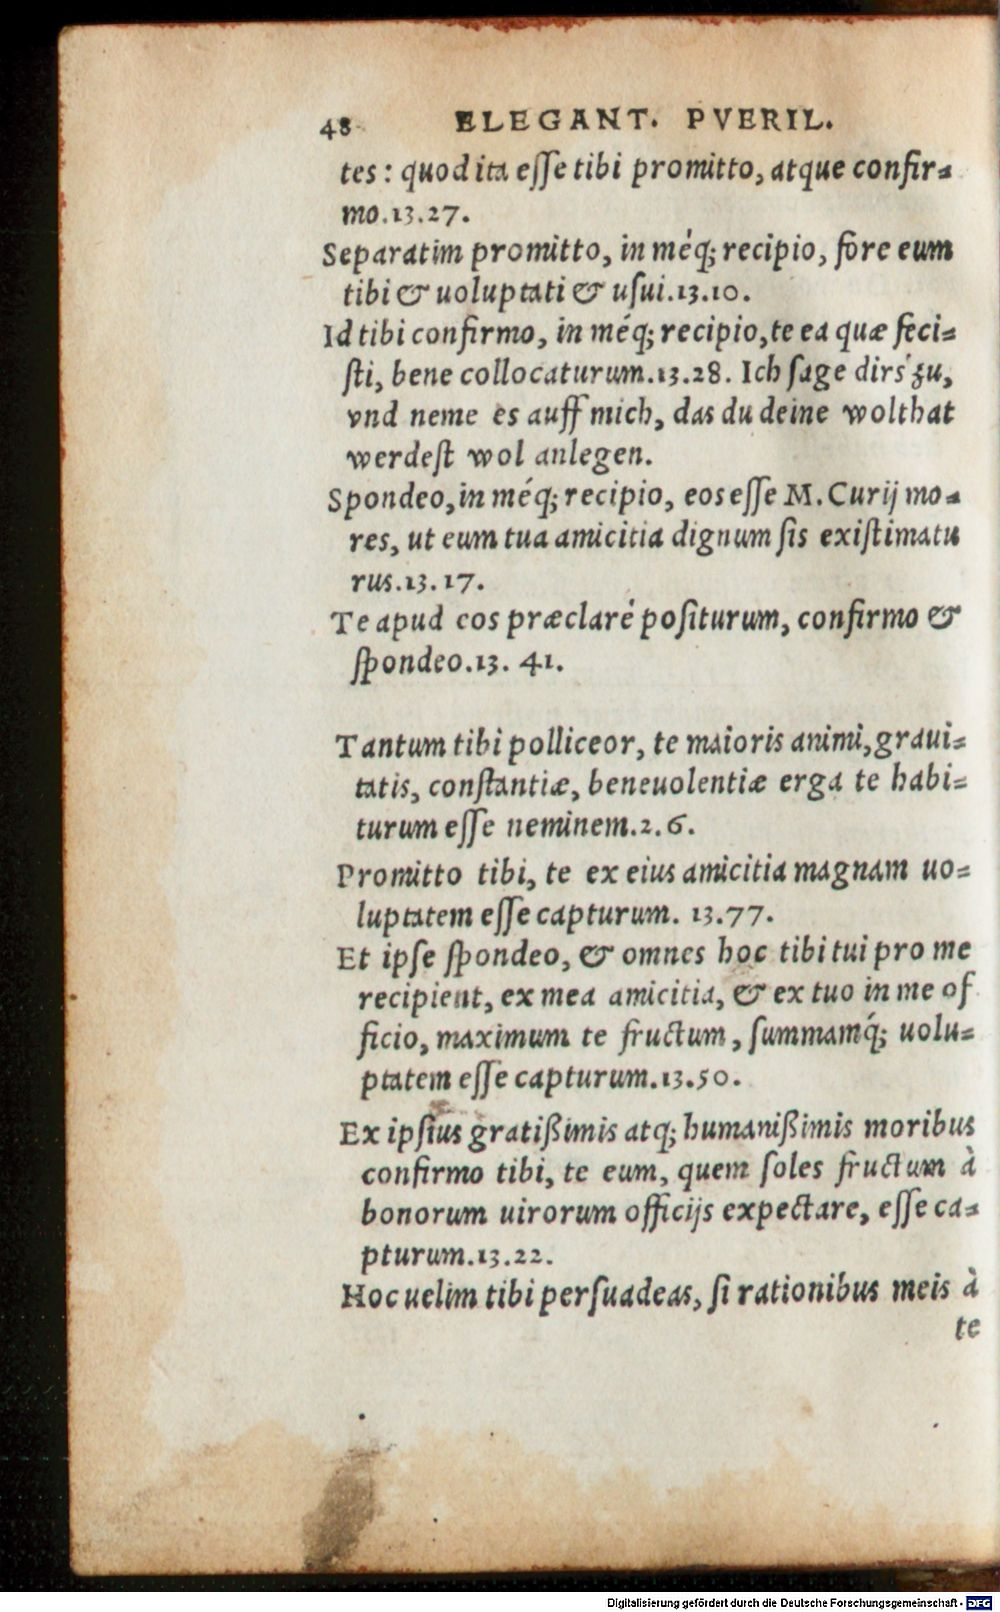 48 ELEGANT. PVERIL.
tes: quod ita eſſe tibi promitto, atque confir⸗
mo.13.27.
Separatim promitto, in méq; recipio, fore eum
tibi & uoluptati & uſui.13.10.
Id tibi confirmo, in méq; recipio, te ea quæ feci⸗
ſti, bene collocaturum.13.28. Ich ſage dirs zu,
vnd neme es auff mich, das du deine wolthat
werdeſt wol anlegen.
Spondeo, in méq; recipio, eos eſſe M. Curij mo⸗
res, ut eum tua amicitia dignum ſis exiſtimatu
rus.13.17.
Te apud cos præclaré poſiturum, confirmo &
ſpondeo.13. 41.
Tantum tibi polliceor, te maioris animi, graui⸗
tatis, conſtantiæ, beneuolentiæ erga te habi⸗
turum eſſe neminem.2.6.
Promitto tibi, te ex eius amicitia magnam uo⸗
luptatem eſſe capturum. 13.77.
Et ipſe ſpondeo, & omnes hoc tibi tui pro me
recipient, ex mea amicitia, & ex tuo in me of
ficio, maximum te fructum, ſummamq́; uolu⸗
ptatem eſſe capturum.13.50.
Ex ipſius gratißimis atq; humanißimis moribus
confirmo tibi, te eum, quem ſoles fructum à
bonorum uirorum officijs expectare, eſſe ca⸗
pturum.13.22.
Hoc uelim tibi perſuadeas, ſi rationibus meis à
te
Digitalisierung gefördert durch die Deutsche Forschungsgemeinschaft - DFG